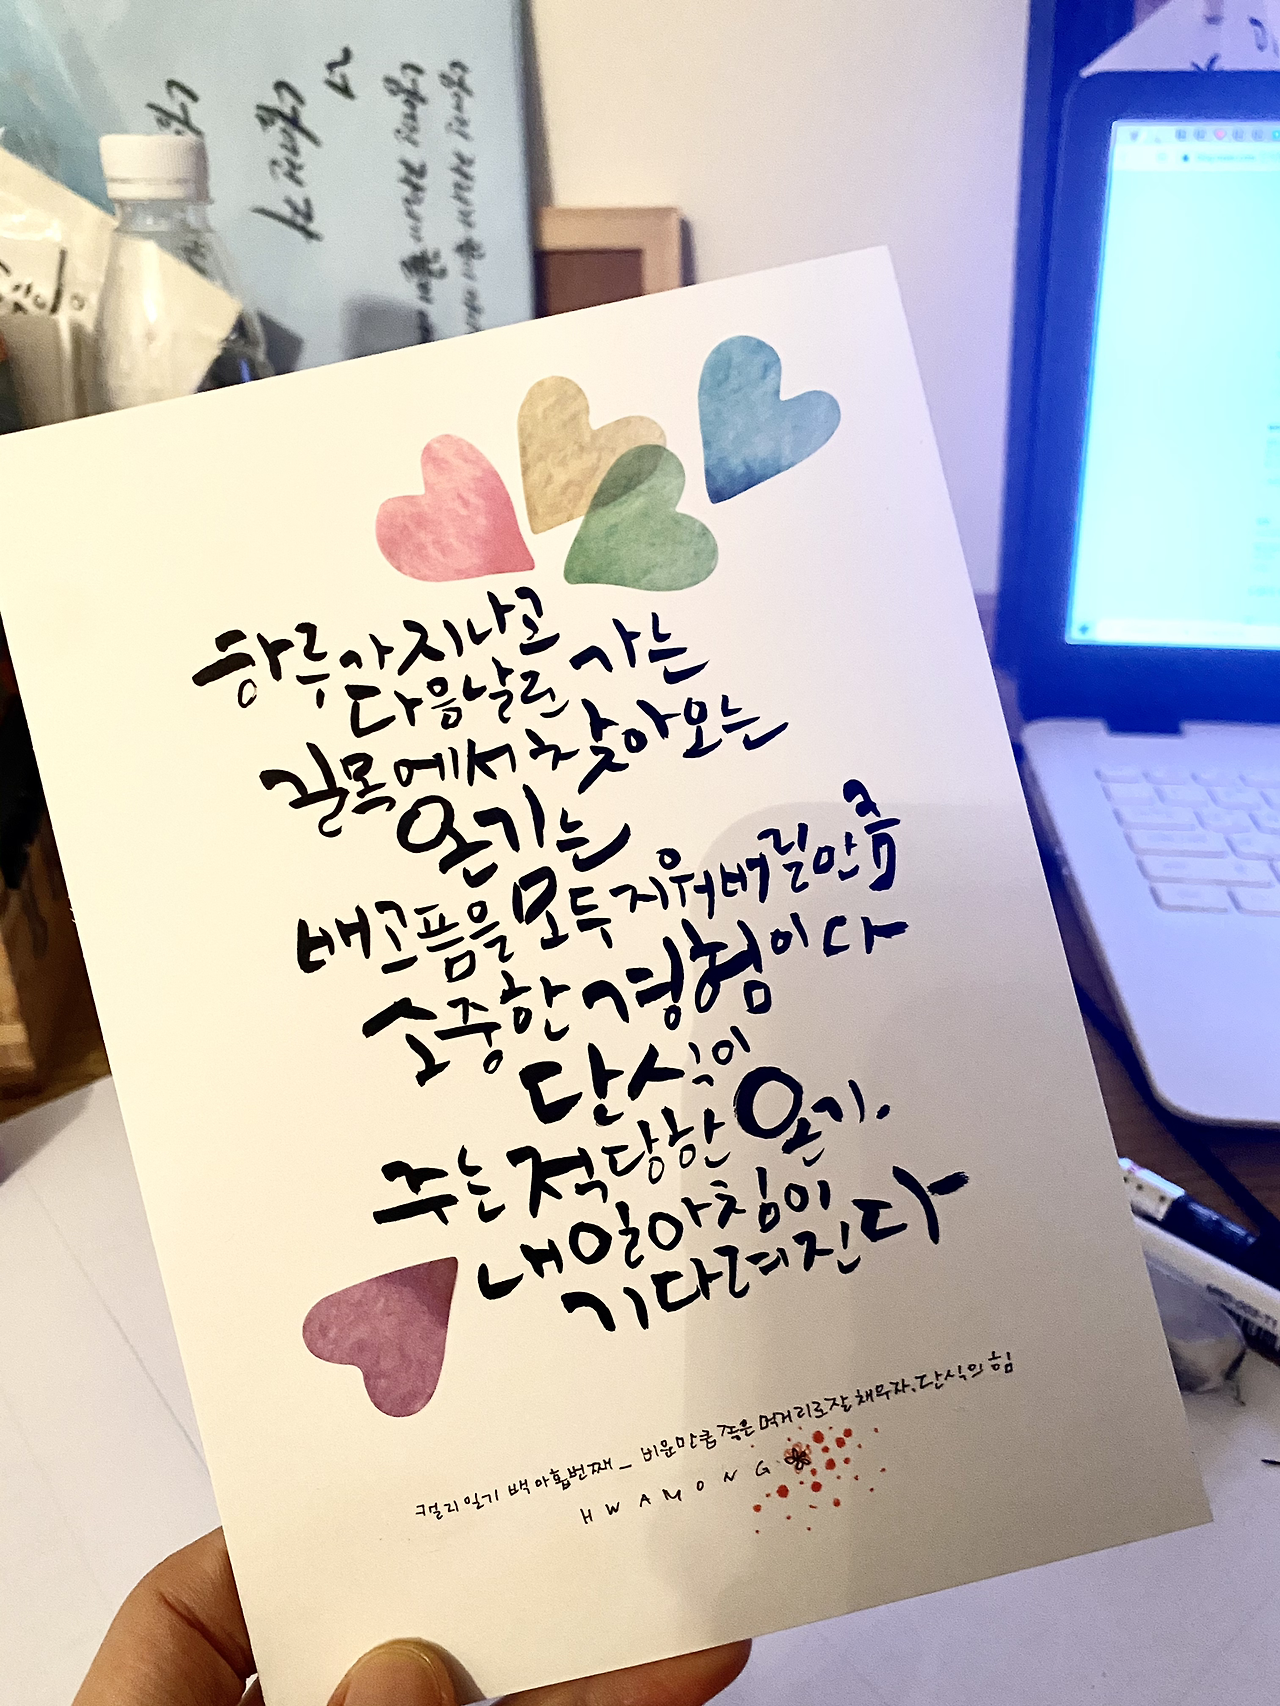 하루가 지나고
다음날로 가는
길목에서 찾아오는
온기는
배고픔을 모두 지워버릴 만큼
소중한 경험이다
단식이
주는 적당한 온기.
내일 아침이
기다려진다
캘리일기 백아홉번째_ 비운만큼 좋은 먹거리로 잘 채우자. 단식의 힘
HWAMONG